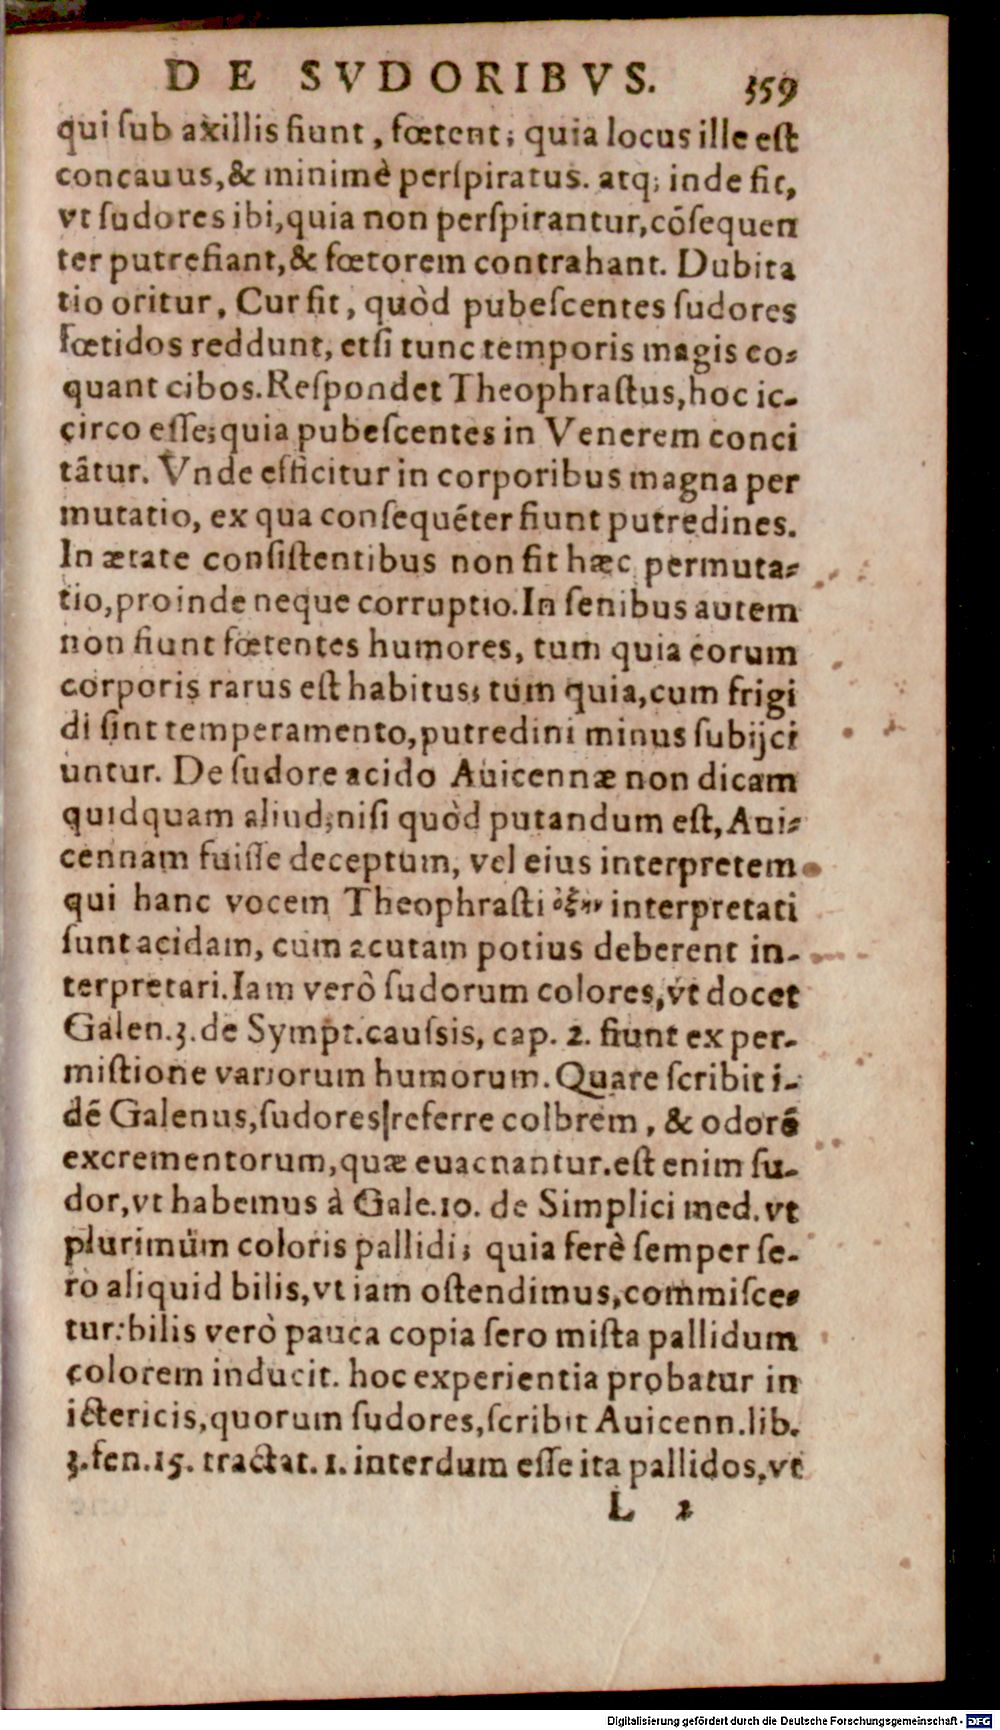 DE SVDORIBVS. 359
qui sub axillis fiunt, fœtent; quia locus ille est
concauus, & minimè perspiratus. atq; inde fit,
vt sudores ibi, quia non perspirantur, cōsequen
ter putrefiant, & fœtorem contrahant. Dubita
tio oritur, Cur fit, quòd pubescentes sudores
fœtidos reddunt, etsi tunc temporis magis co-
quant cibos. Respondet Theophrastus, hoc ic-
circo esse; quia pubescentes in Venerem conci
tātur. Vnde efficitur in corporibus magna per
mutatio, ex qua consequēter fiunt putredines.
In ætate consistentibus non fit hæc permuta-
tio, proinde neque corruptio. In senibus autem
non fiunt fœtentes humores, tum quia eorum
corporis rarus est habitus; tum quia, cum frigi
di sint temperamento, putredini minus subijci
untur. De sudore acido Auicennæ non dicam
quidquam aliud; nisi quòd putandum est, Aui-
cennam fuisse deceptum, vel eius interpretem
qui hanc vocem Theophrasti interpretati
sunt acidam, cum acutam potius deberent in-
terpretari. Iam verò sudorum colores, vt docet
Galen. 3. de Sympt. caussis, cap. 2. fiunt ex per-
mistione variorum humorum. Quare scribit i-
dē Galenus, sudores referre colorem, & odorē
excrementorum, quæ euacnantur. est enim su-
dor, vt habemus à Gale. 10. de Simplici med. vt
plurimùm coloris pallidi; quia ferè semper se-
ro aliquid bilis, vt iam ostendimus, commisce-
tur: bilis verò pauca copia sero mista pallidum
colorem inducit. hoc experientia probatur in
ictericis, quorum sudores, scribit Auicenn. lib.
3. fen. 15. tractat. 1. interdum esse ita pallidos, vt
L 2
Digitalisierung gefördert durch die Deutsche Forschungsgemeinschaft - DFG